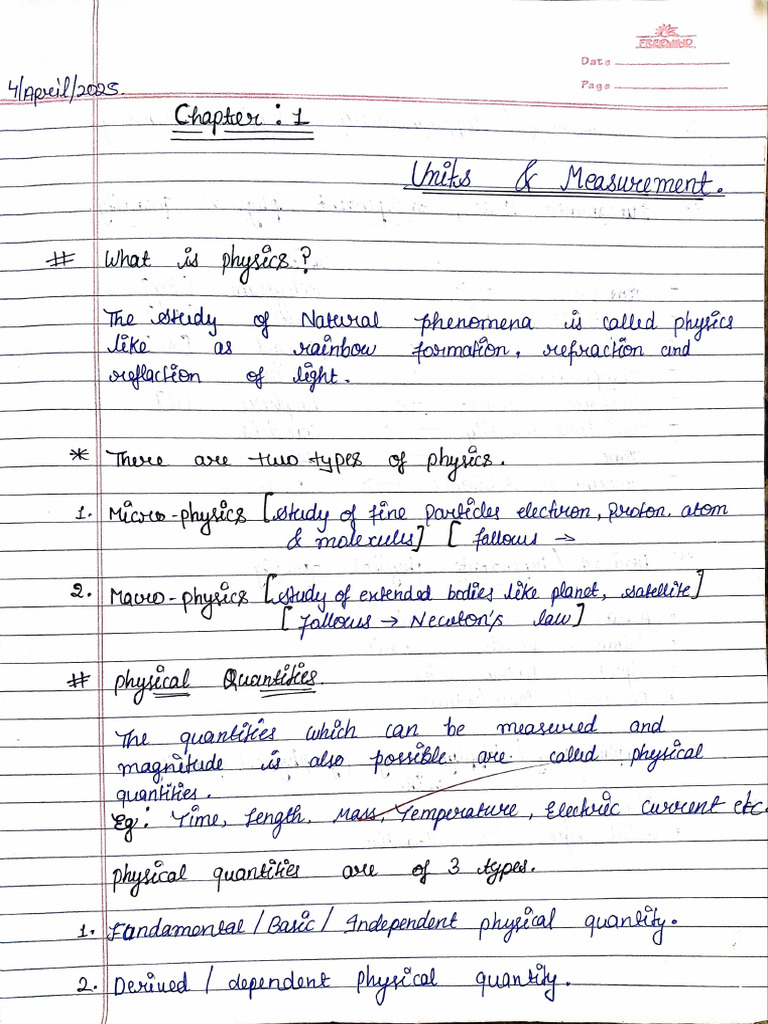 FREEMIND
Date
Page
4/April/2025.
Chapter : 1
Units & Measurement.
# What is physics?
The study of Natural phenomena is called physics
like as rainbow formation, refraction and
reflaction of light.
* There are two types of physics.
1. Micro-physics [study of fine particles electron, proton. atom
& molecules] [ fallows →
2. Macro-physics [study of extended bodies like planet, satellite]
[ fallows → Newton's law]
# physical Quantities.
The quantities which can be measured and
magnitude is also possible are called physical
quantities.
Eg: Time, Length, Mass, Temperature, Electric current etc.
physical quantities are of 3 types.
1. Fundamental / Basic / Independent physical quantity.
2. Derived / dependent physical quantity.